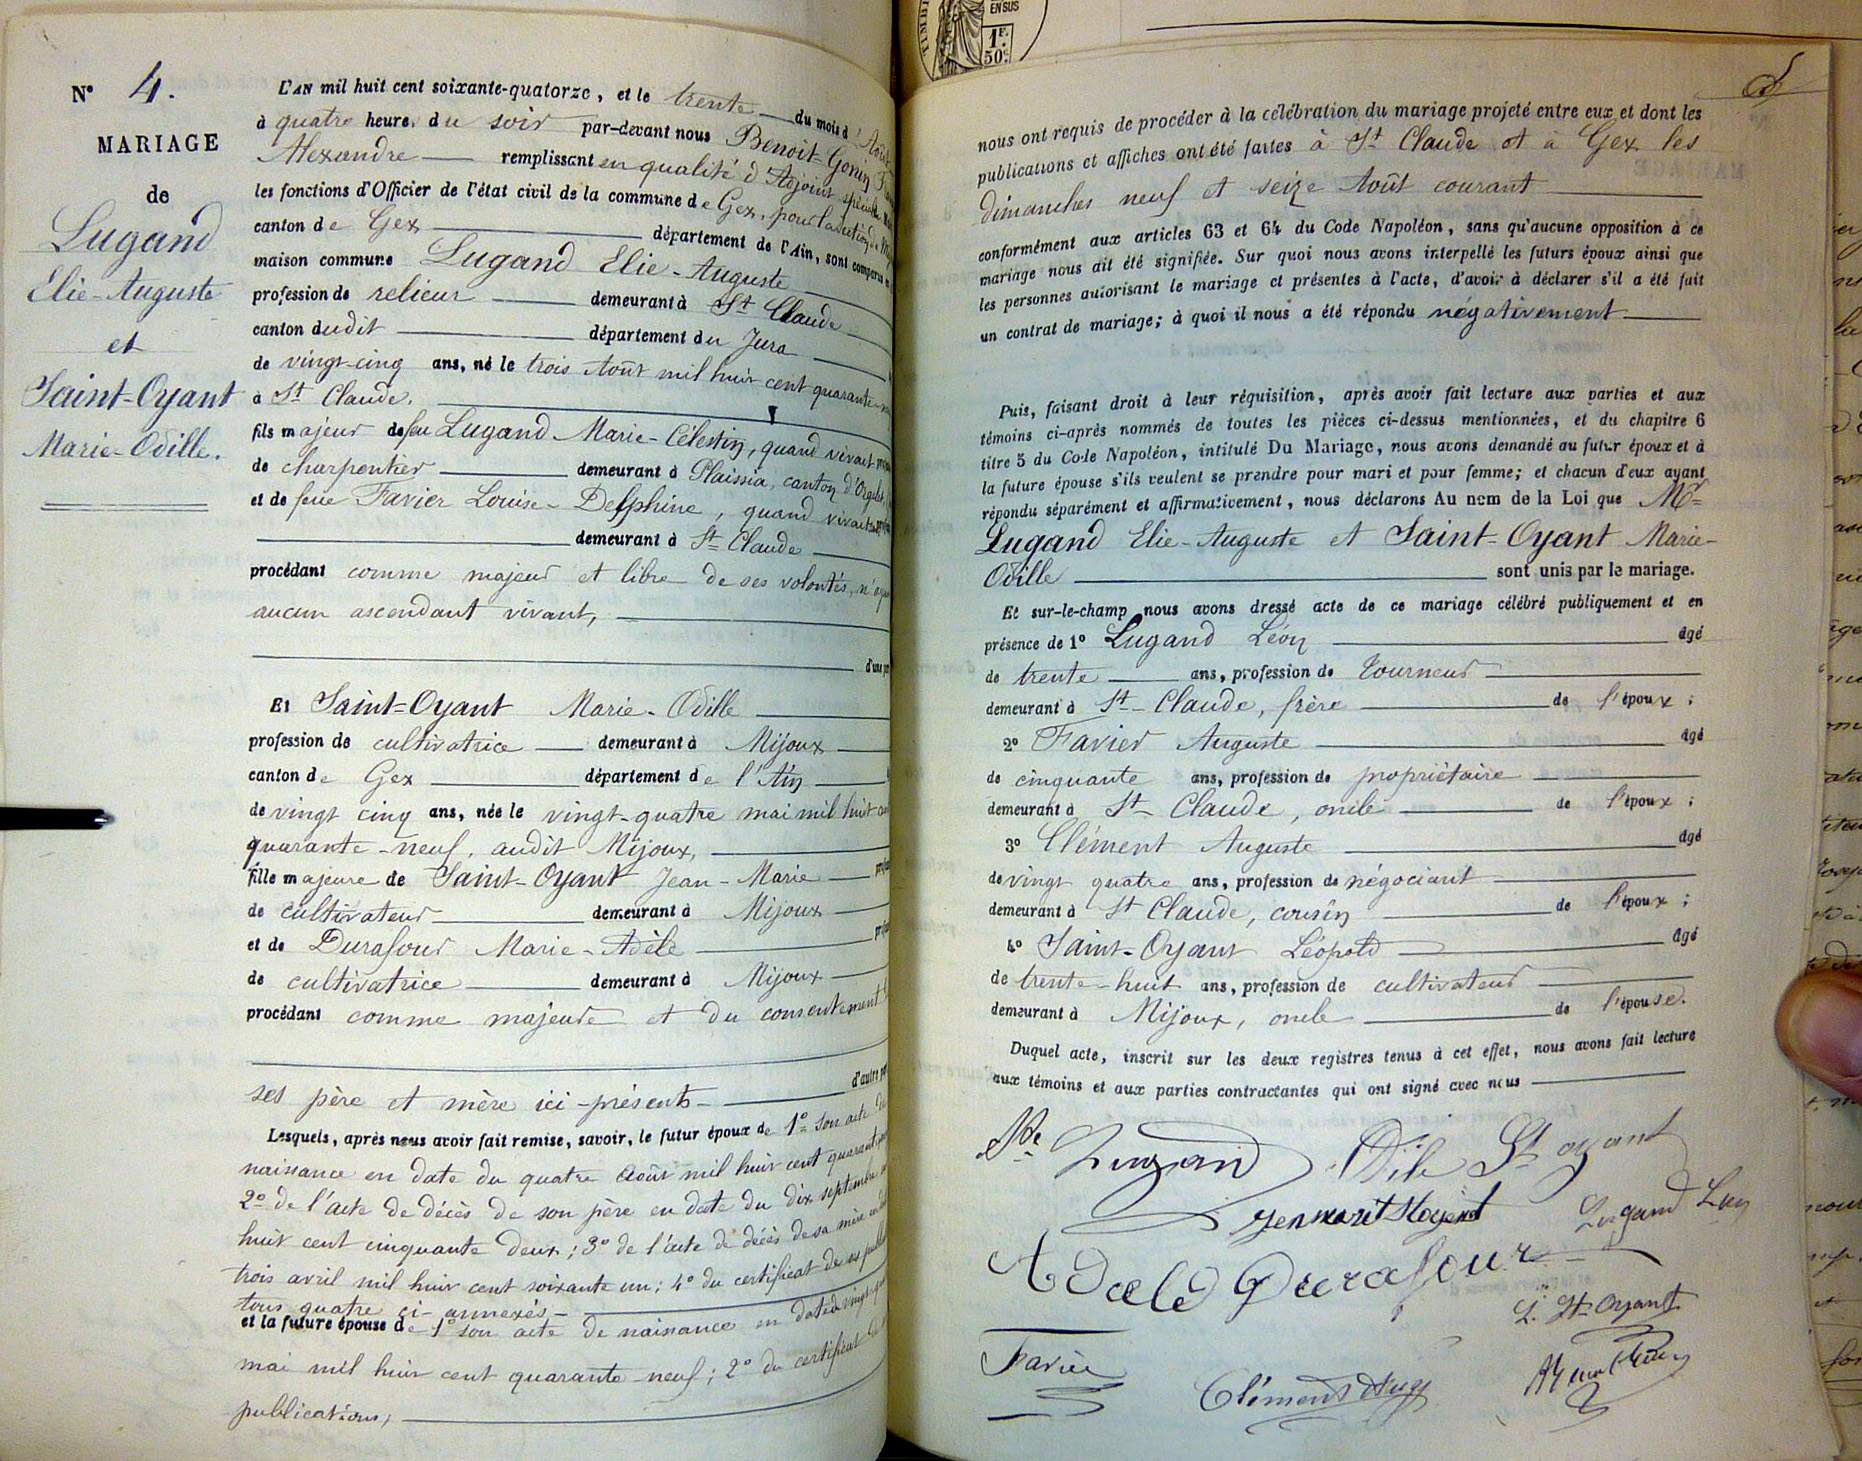 N° 4.
MARIAGE
de
Lugand
Elie-Auguste
et
Saint-Oyant
Marie-Odille.
L'AN mil huit cent soixante-quatorze, et le trente du mois d'Août
à quatre heures du soir par-devant nous Benoit-Gonin
Alexandre remplissant en qualité d'Adjoint spécial
les fonctions d'Officier de l'état civil de la commune de Gex, pour la section de
canton de Gex département de l'Ain, sont comparus
maison commune Lugand Elie-Auguste
profession de relieur demeurant à St Claude
canton dudit département du Jura
de vingt-cinq ans, né le trois Août mil huit cent quarante
à St Claude.
fils majeur de feu Lugand Marie-Célestin, quand vivait
de charpentier demeurant à Plaissia, canton d'Orgelet
et de feue Favier Louise-Delphine, quand vivait
demeurant à St Claude
procédant comme majeur et libre de ses volontés, n'
aucun ascendant vivant,
d'une
Et Saint-Oyant Marie-Odille
profession de cultivatrice demeurant à Mijoux
canton de Gex département de l'Ain
de vingt cinq ans, née le vingt-quatre mai mil huit
quarante-neuf, audit Mijoux,
fille majeure de Saint-Oyant Jean-Marie
de cultivateur demeurant à Mijoux
et de Durafour Marie-Adèle
de cultivatrice demeurant à Mijoux
procédant comme majeure et du consentement
d'autre
ses père et mère ici-présents
Lesquels, après nous avoir fait remise, savoir, le futur époux de 1° son acte de
naissance en date du quatre août mil huit cent quarante
2° de l'acte de décès de son père en date du dix septembre
huit cent cinquante deux; 3° de l'acte de décès de sa mère en
trois avril mil huit cent soixante un; 4° du certificat de
tous quatre ci-annexés
et la future épouse de 1° son acte de naissance en date
mai mil huit cent quarante-neuf; 2° du certificat
publications,
TIMBR
EN SUS
1F.
50c.
nous ont requis de procéder à la célébration du mariage projeté entre eux et dont les
publications et affiches ont été faites à St Claude et à Gex les
dimanches neuf et seize Août courant
conformément aux articles 63 et 64 du Code Napoléon, sans qu'aucune opposition à ce
mariage nous ait été signifiée. Sur quoi nous avons interpellé les futurs époux ainsi que
les personnes autorisant le mariage et présentes à l'acte, d'avoir à déclarer s'il a été fait
un contrat de mariage; à quoi il nous a été répondu négativement
Puis, faisant droit à leur réquisition, après avoir fait lecture aux parties et aux
témoins ci-après nommés de toutes les pièces ci-dessus mentionnées, et du chapitre 6
titre 5 du Code Napoléon, intitulé Du Mariage, nous avons demandé au futur époux et à
la future épouse s'ils veulent se prendre pour mari et pour femme; et chacun d'eux ayant
répondu séparément et affirmativement, nous déclarons Au nom de la Loi que Mr
Lugand Elie-Auguste et Saint-Oyant Marie-
Odille sont unis par le mariage.
Et sur-le-champ nous avons dressé acte de ce mariage célébré publiquement et en
présence de 1° Lugand Léon âgé
de trente ans, profession de tourneur
demeurant à St-Claude, frère de l'époux;
2° Favier Auguste âgé
de cinquante ans, profession de propriétaire
demeurant à St-Claude, oncle de l'époux;
3° Clément Auguste âgé
de vingt quatre ans, profession de négociant
demeurant à St Claude, cousin de l'époux;
4° Saint-Oyant Léopold âgé
de trente-huit ans, profession de cultivateur
demeurant à Mijoux, oncle de l'épouse.
Duquel acte, inscrit sur les deux registres tenus à cet effet, nous avons fait lecture
aux témoins et aux parties contractantes qui ont signé avec nous
Lugand Odile St oyant
Lugand
Adelé Durafour
L. St-Oyant
Favier
Clément Aug